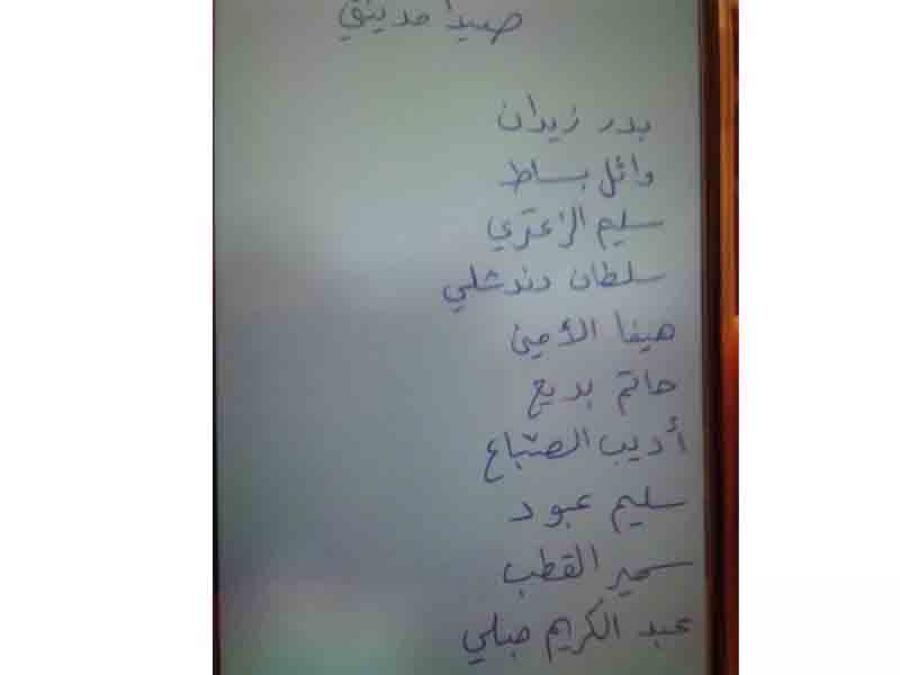 صيدا مدينتي
بدر زيدان
وائل بساط
سليم الزعتري
سلطان دندشلي
هيفا الأمين
حاتم بديع
أديب الصبّاع
سليم عبود
سمير القطب
عبد الكريم حبلي